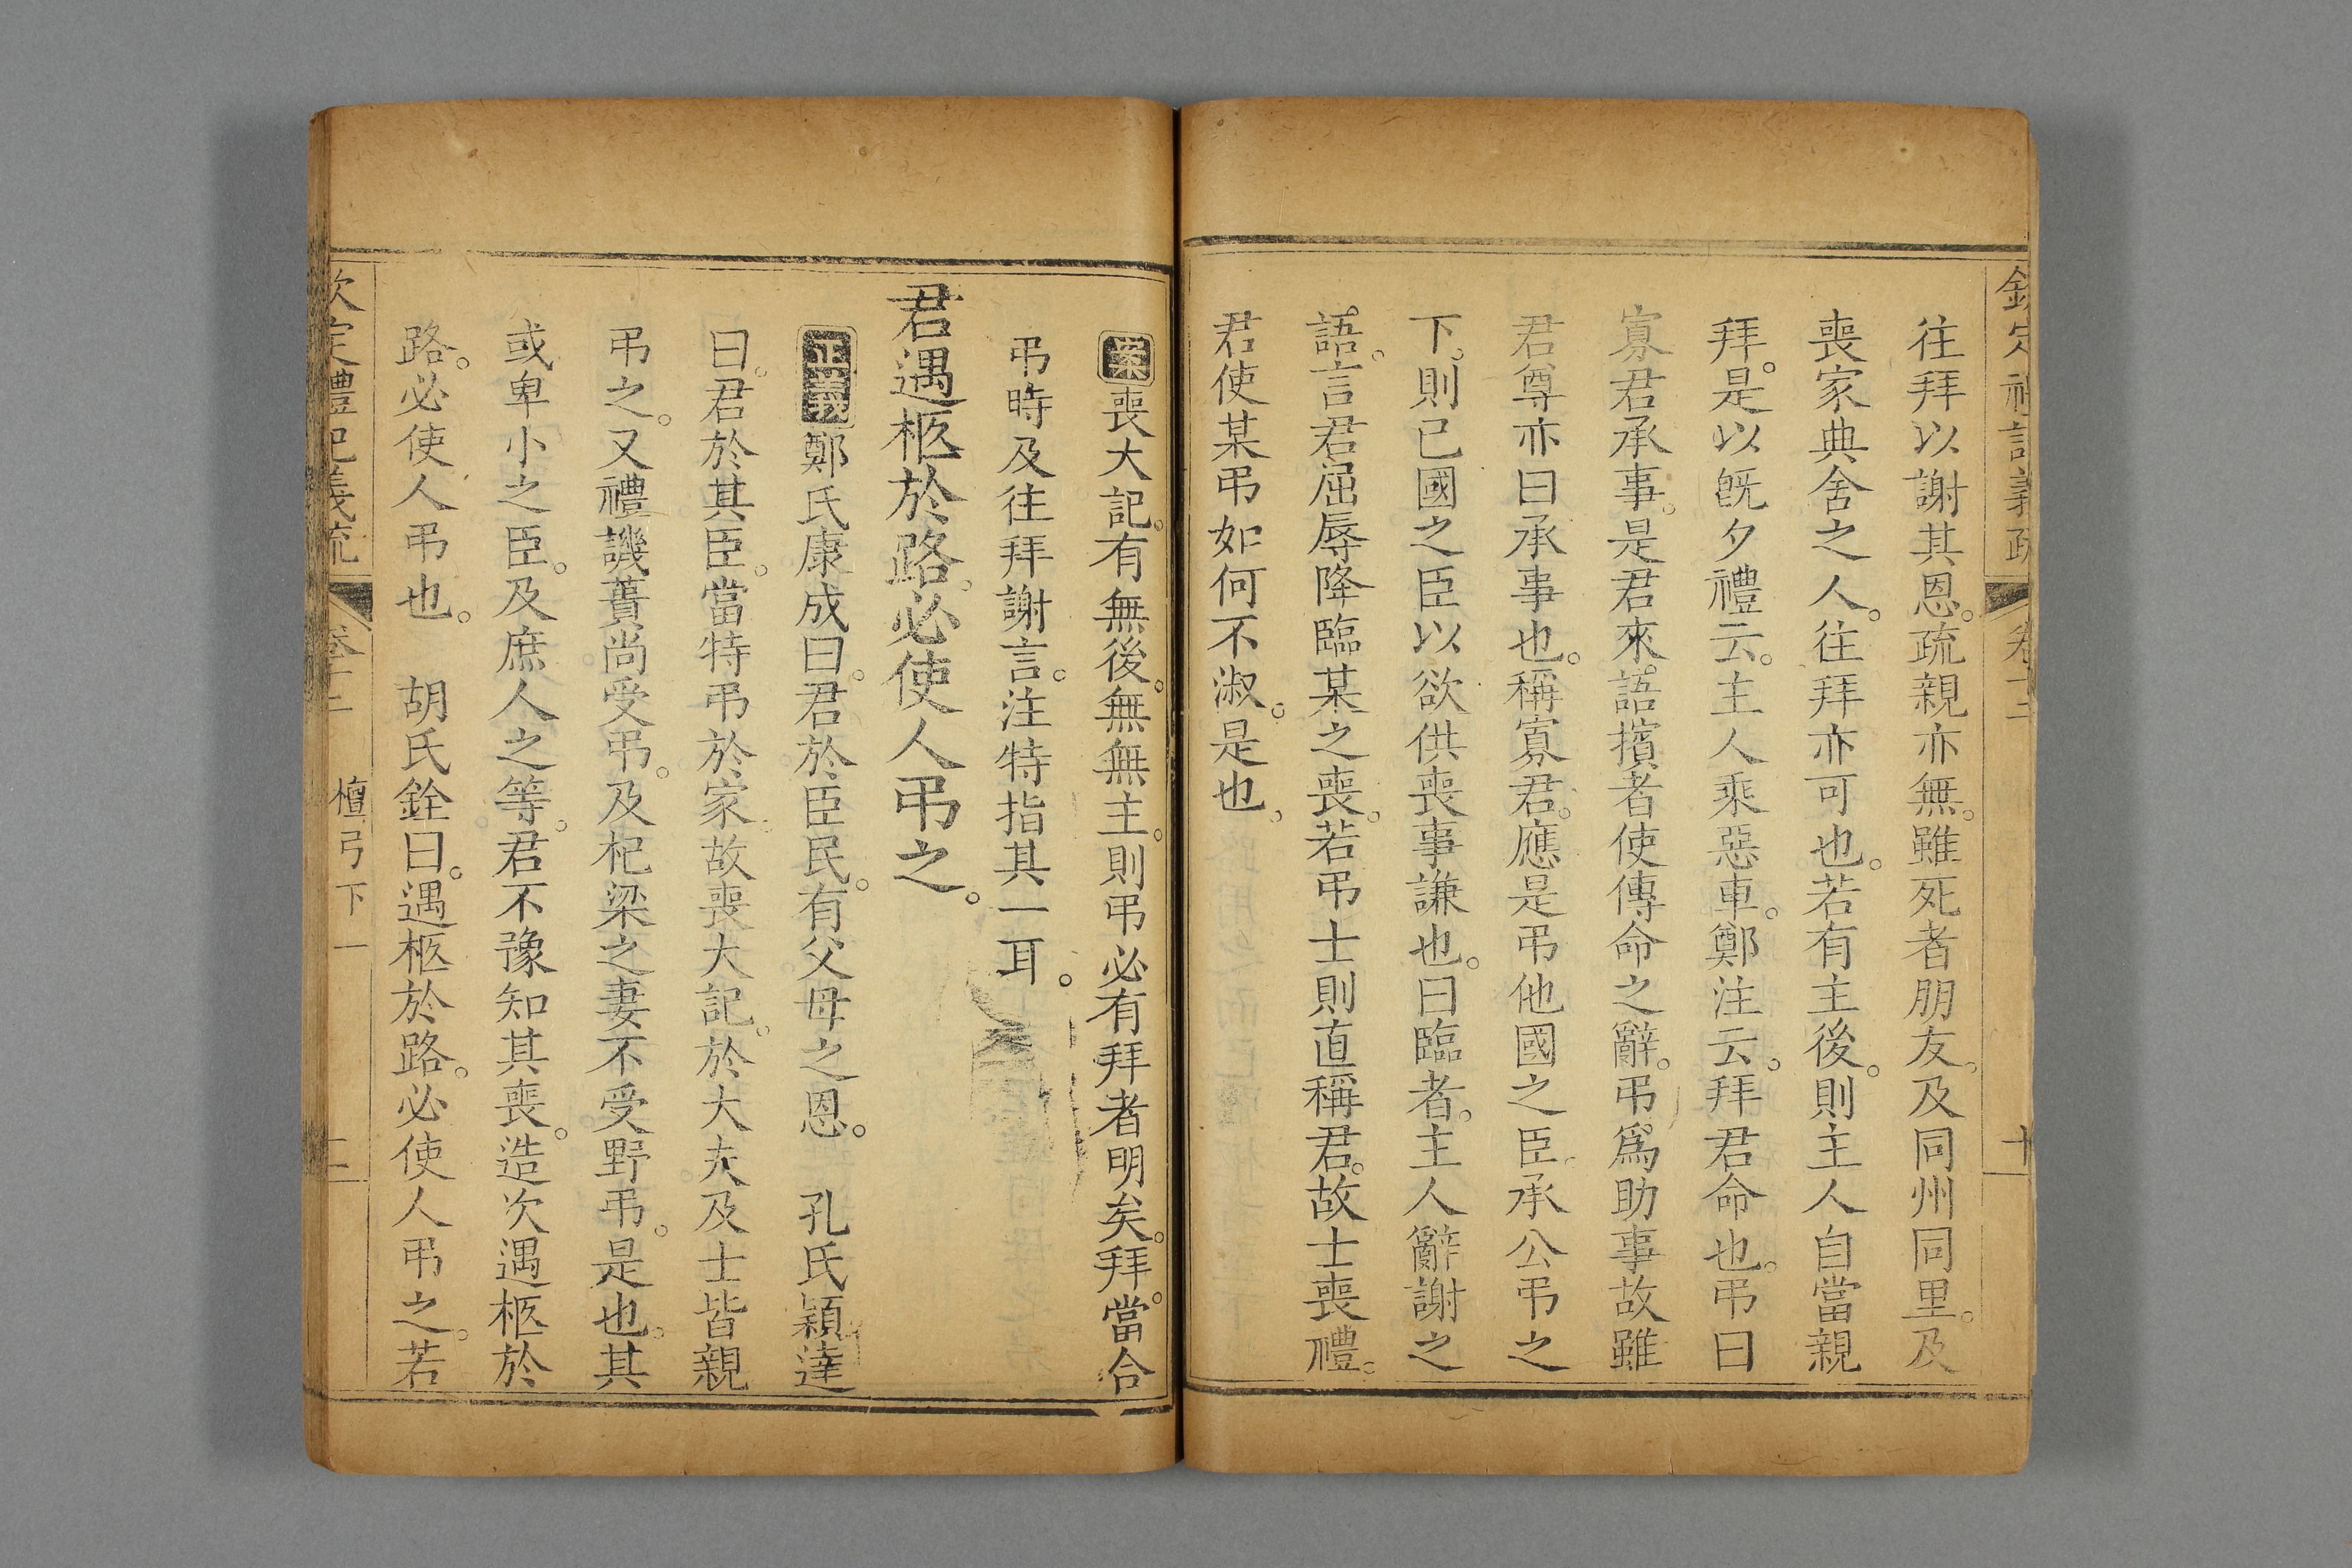 往拜以謝其恩。疏親亦無。雖死者朋友。及同州同里。及
喪家典舍之人。往拜亦可也。若有主後。則主人自當親
拜。是以旣夕禮云。主人乘惡車。鄭注云。拜君命也。弔曰
寡君承事。是君來。語擯者使傳命之辭。弔。爲助事故雖
君尊亦曰承事也。稱寡君。應是弔他國之臣。承公弔之
下。則已國之臣以欲供喪事謙也。曰臨者。主人辭謝之
語。言君屈辱降臨某之喪。若弔士則直稱君。故士喪禮。
君使某弔如何不淑。是也。
案喪大記。有無後。無無主。則弔必有拜者明矣。拜。當合
弔時及往拜謝言。注特指其一耳。
君遇柩於路。必使人弔之。
正義鄭氏康成曰。君於臣民。有父母之恩。 孔氏穎達
曰。君於其臣。當特弔於家故喪大記。於大夫及士皆親
弔之。又禮譏蕢尚受弔。及杞梁之妻不受野弔。是也。其
或卑小之臣。及庶人之等。君不豫知其喪。造次遇柩於
路。必使人弔也。 胡氏銓曰。遇柩於路。必使人弔之。若
欽定禮記義疏 卷十二 檀弓下一